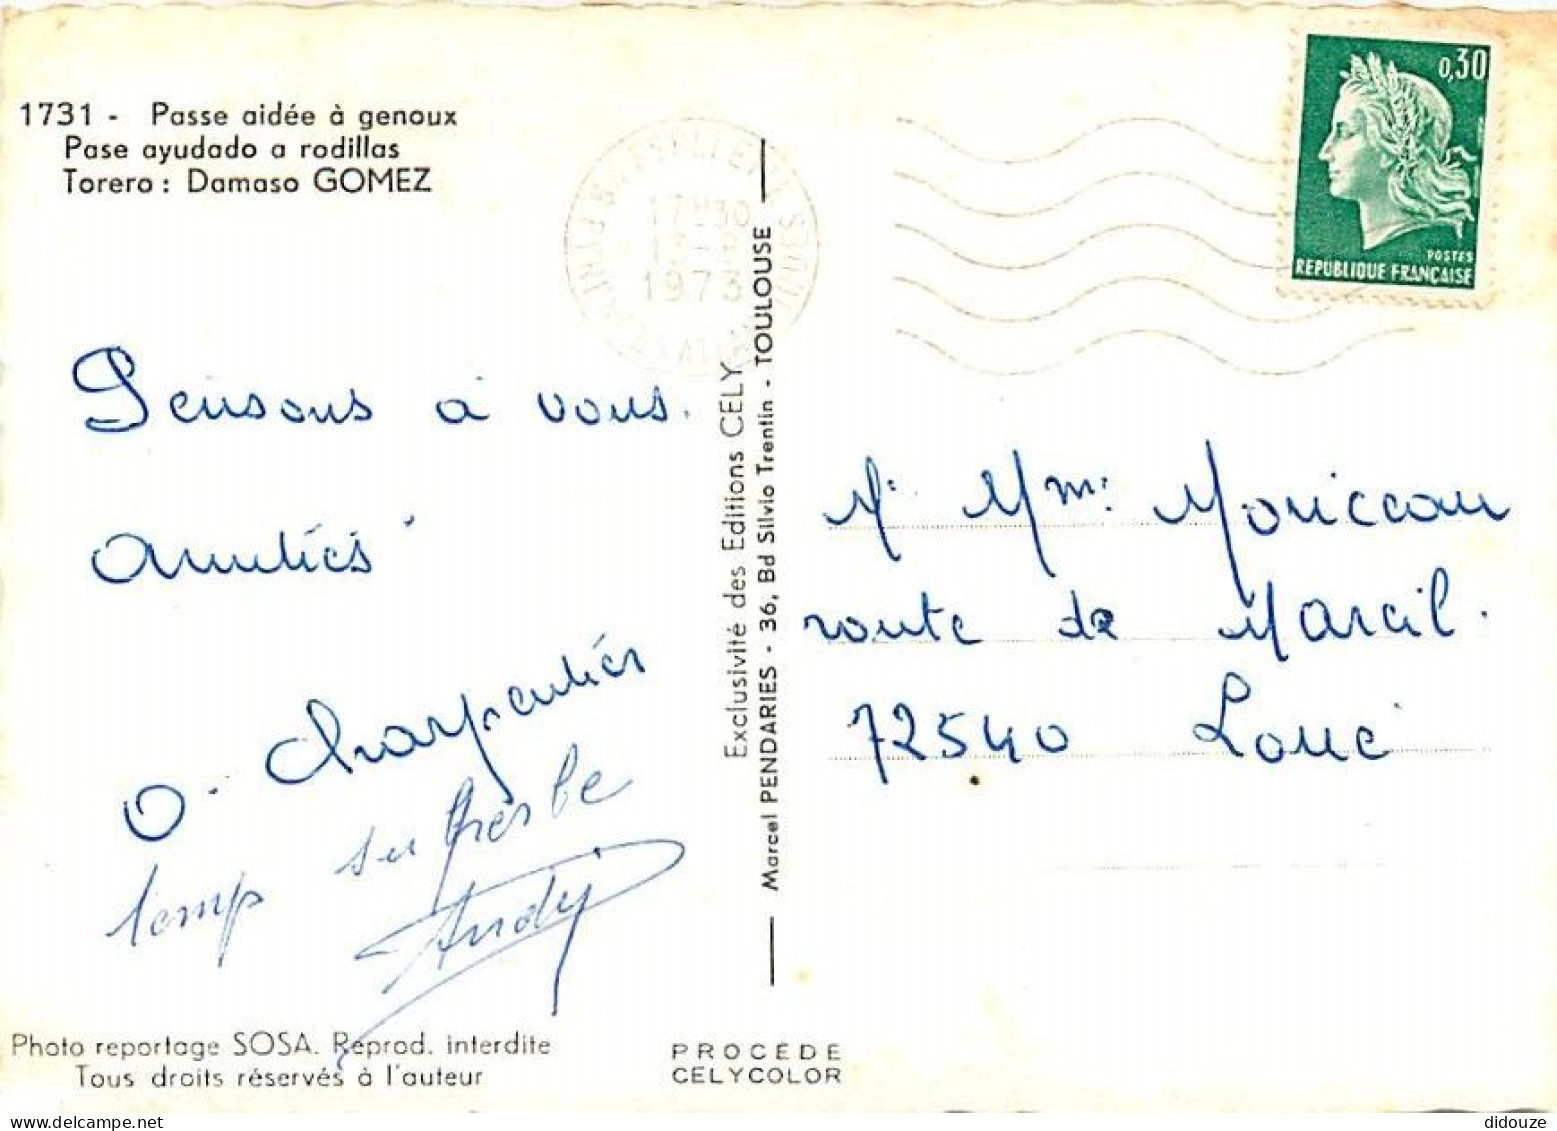 1731 - Passe aidée à genoux
Pase ayudado a rodillas
Torero : Damaso GOMEZ
17H30
1973
0,30
POSTES
REPUBLIQUE FRANÇAISE
Pensons à vous.
Amitiés
O. Charpentier
temp superbe
Andy
Exclusivité des Editions CELY
Marcel PENDARIES - 36, Bd Silvio Trentin - TOULOUSE
Mr Mme Moriceau
route de Mareil.
72540 Loué
Photo reportage SOSA. Reprod. interdite
Tous droits réservés à l'auteur
PROCÉDÉ
CELYCOLOR
didouze @ delcampe.net